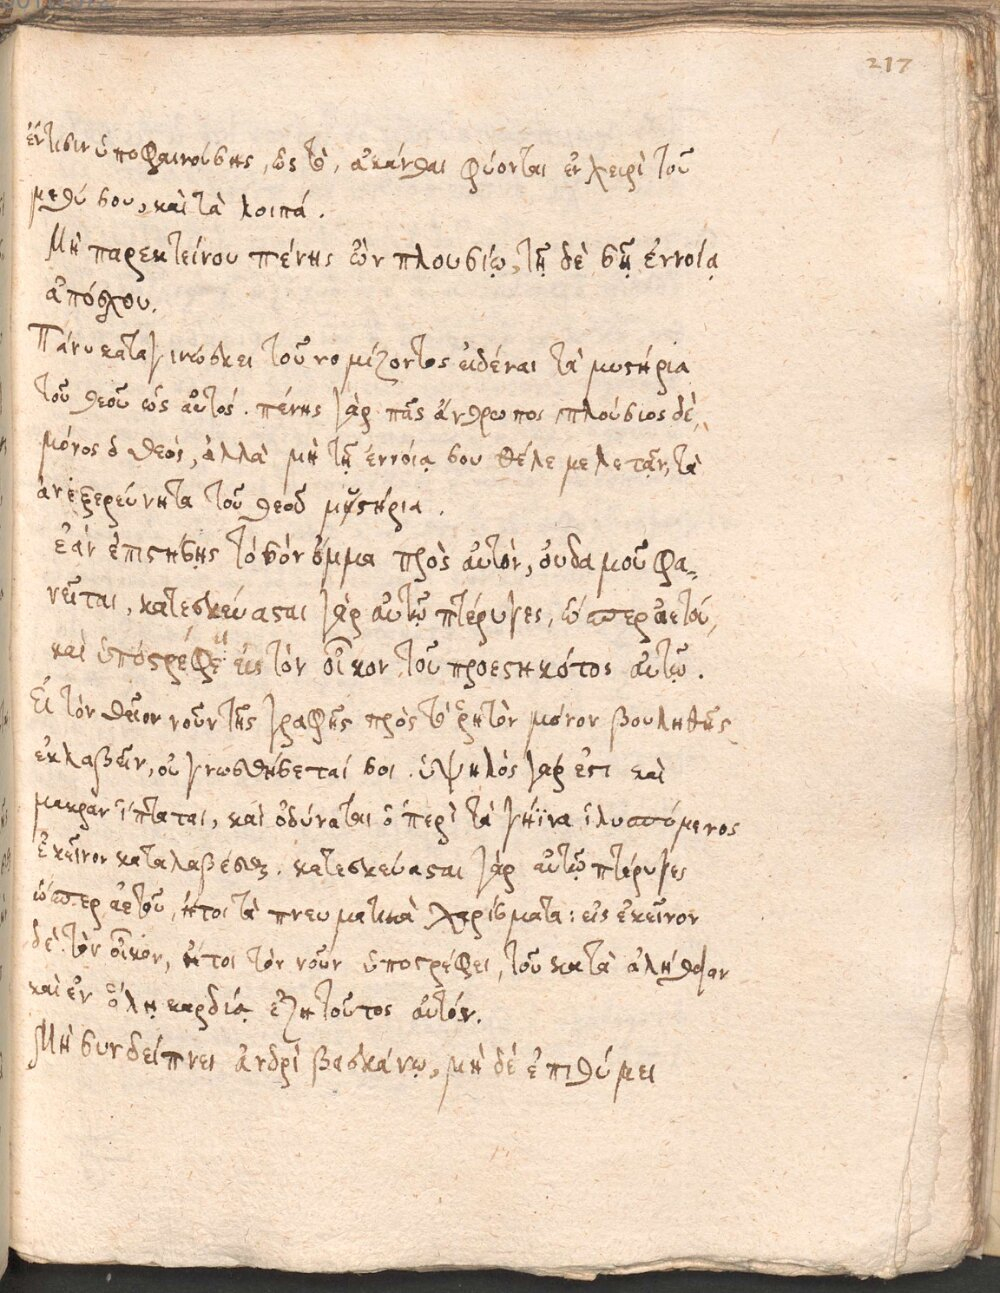 217
ἔντισιν ὑποφαινούσης, ὡς τὸ, ἀκάνθαι φύονται ἐν χειρὶ τοῦ
μεθύσου, καὶ τὰ λοιπά.
Μὴ παρεκτείνου πένης ὢν πλουσίῳ, τῇ δὲ σῇ ἐννοίᾳ
ἀπόσχου.
Πάνυ καταγινώσκει τοῦ νομίζοντος εἰδέναι τὰ μυστήρια
τοῦ θεοῦ ὡς αὐτός. πένης γὰρ πᾶς ἄνθρωπος, πλούσιος δὲ
μόνος ὁ θεός, ἀλλὰ μὴ τῇ ἐννοίᾳ σου θέλε μελετᾷν, τὰ
ἀνεξερεύνητα τοῦ θεοῦ μυστήρια.
Ἐὰν ἐπιστήσῃς τὸ σὸν ὄμμα πρὸς αὐτὸν, οὐδαμοῦ φα-
νεῖται, κατεσκεύασται γὰρ αὐτῷ πτέρυγες, ὥσπερ ἀετοῦ,
καὶ ὑποστρέφει εἰς τὸν οἶκον τοῦ προεστηκότος αὐτῷ.
Εἰ τὸν θεῖον νοῦν τῆς γραφῆς πρὸς τὸ ῥητὸν μόνον βουληθῇς
ἐκλαβεῖν, οὐ γνωσθήσεταί σοι. ὑψηλὸς γάρ ἐστι καὶ
μακρὰν ἵπταται, καὶ ὀδύναται ὁ περὶ τὰ γήϊνα ἰλυσπόμενος
ἐκεῖνον καταλαβέσθαι. κατεσκεύασται γὰρ αὐτῷ πτέρυγες
ὥσπερ ἀετοῦ, ἤτοι τὰ πνευματικὰ χαρίσματα: εἰς ἐκεῖνον
δὲ τὸν οἶκον, ἤτοι τὸν νοῦν ὑποστρέφει, τοῦ κατὰ ἀλήθειαν
καὶ ἐν ὅλῃ καρδίᾳ ἐζητοῦντος αὐτόν.
Μὴ συνδείπνει ἀνδρὶ βασκάνῳ, μὴ δὲ ἐπιθύμει